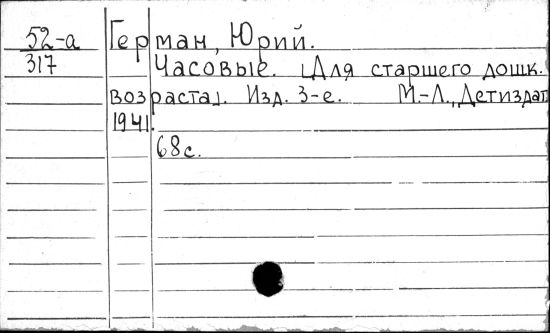 52-а
317
Герман, Юрий.
Часовые. [Для старшего дошк.
возраста]. Изд. 3-е. М.-Л., Детиздат
1941.
68 с.